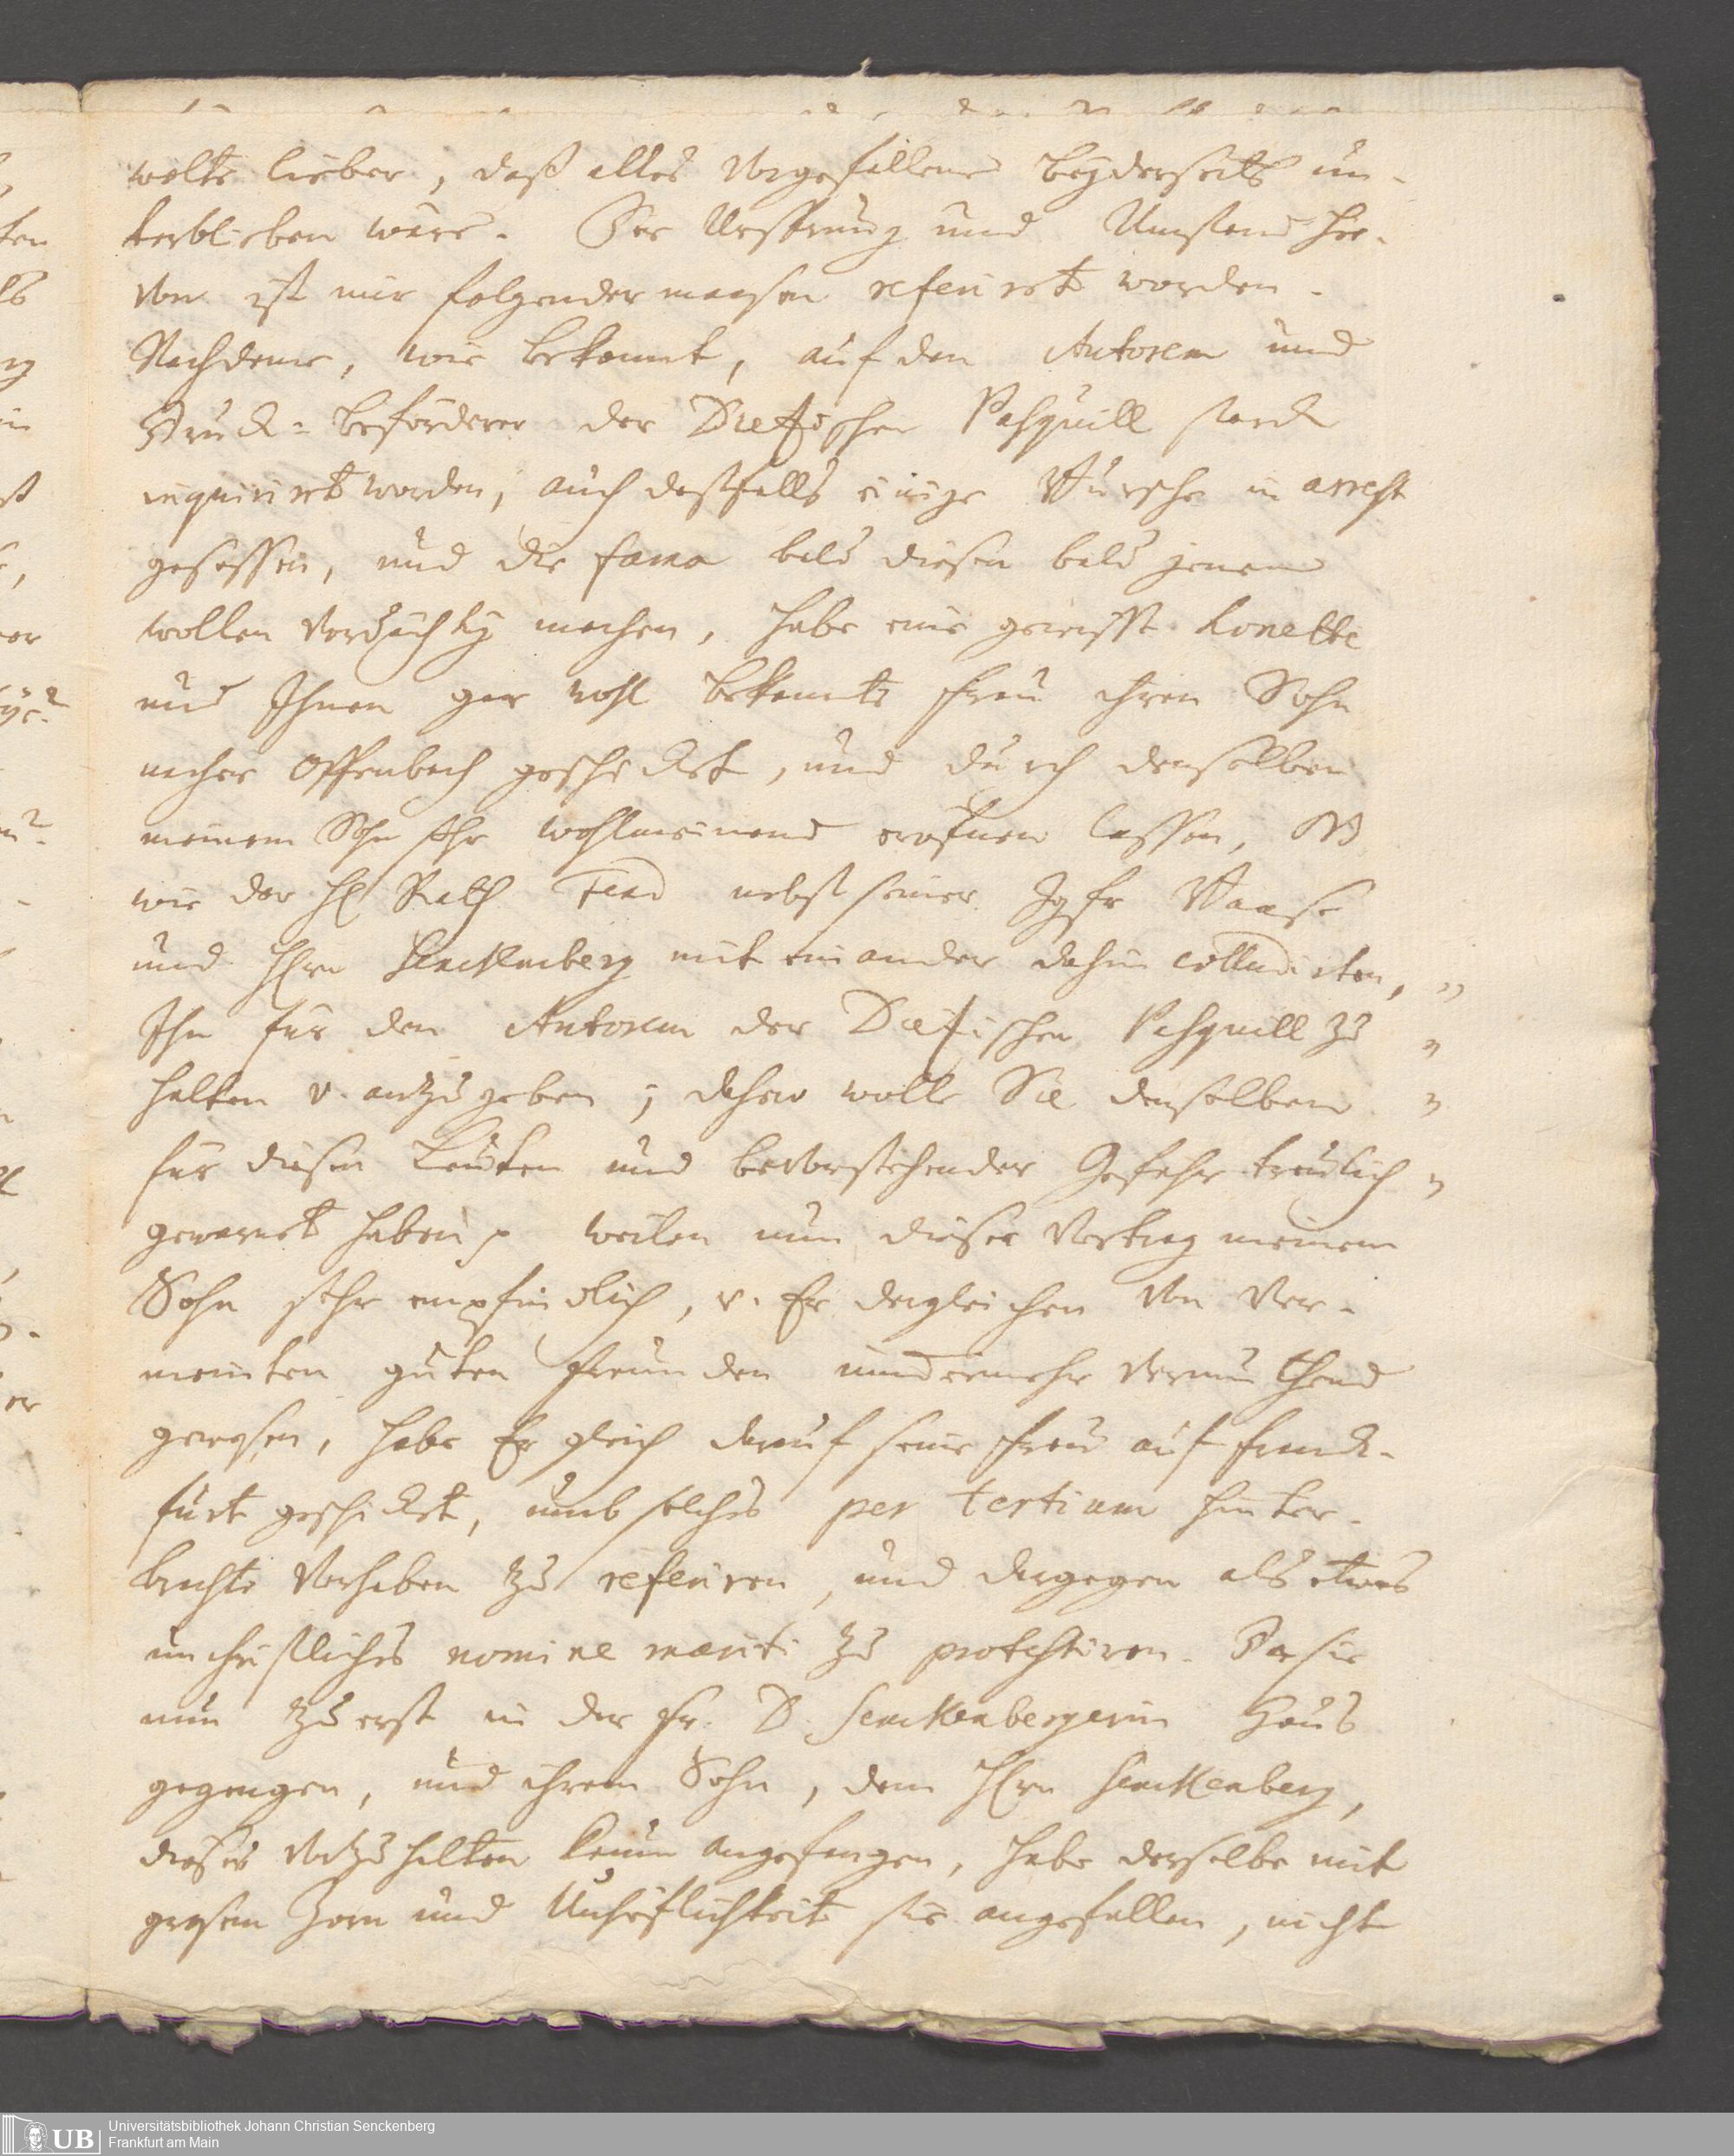 wolte lieber, daß alles vorgefallene beyderseits un-
terblieben wäre. Der Ursprung und Umstand hie-
von ist mir folgendermaasen referiret worden.
Nachdeme, wie bekannt, auf den Autorem und
Druck-beförderer der Dietzischen Pasquill starck
inquiriret worden, auch deßfalls einige Pursche in arrest
gesessen, und die fama bald diesen bald jenen
wollen verdächtig machen, habe eine gewisse honette
und Ihnen gar wohl bekante Frau ihren Sohn
nacher Offenbach geschicket, und durch denselben
meinem Sohn sehr wohlmeinend eröfnen lassen,
wie der H. Rath Fend nebst seiner Jgfr Baase
und Hrn Senckenberg mit einander dahin colludirten, "
Ihn für den Autorem der Dietzischen Pasquill zu "
halten v. anzugeben; dahero wolle Sie denselben "
für diesen Leuten und bevorstehender Gefahr treulich "
gewarnet haben p weilen nun dieser Vortrag meinem
Sohn sehr empfindlich, v. Er dergleichen von ver-
meinten guten Freunden nimmermehr vermuthend
gewesen, habe Er gleich darauf seine Frau auf Franck-
furt geschicket, umb solches per tertium hinter-
brachte Vorhaben zu referiren, und dargegen als etwas
unchristliches nomine mariti zu protestiren. Da sie
nun zu erst in der Fr. D. Senckenbergerin Haus
gegangen, und ihrem Sohn, dem Hrn Senckenberg,
dieses vorzuhalten kaum angefangen, habe derselbe mit
grosem Zorn und Unhöflichkeit sie angefallen, nicht
Universitätsbibliothek Johann Christian Senckenberg
Frankfurt am Main
UB